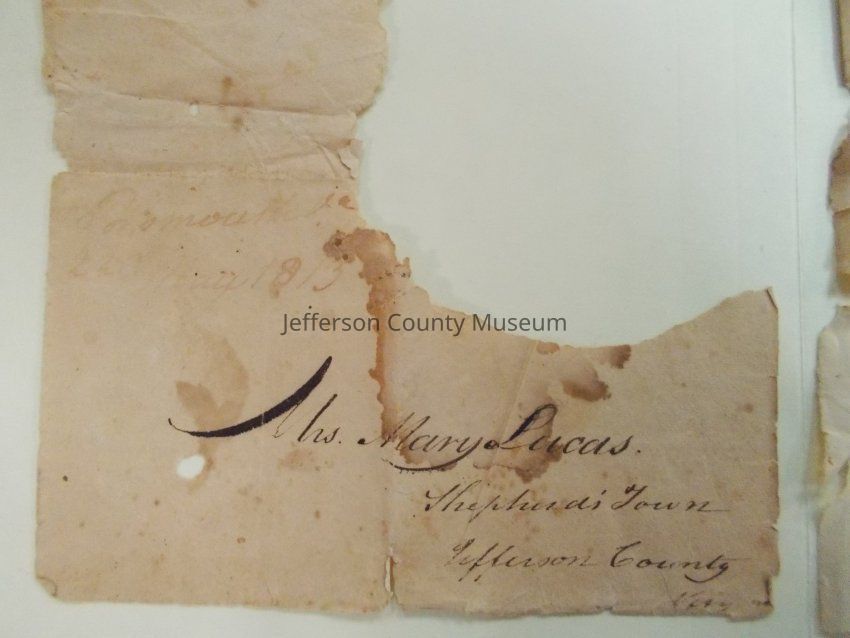 May 1813
Jefferson County Museum
Mrs. Mary Lucas.
Shepherd's Town
Jefferson County